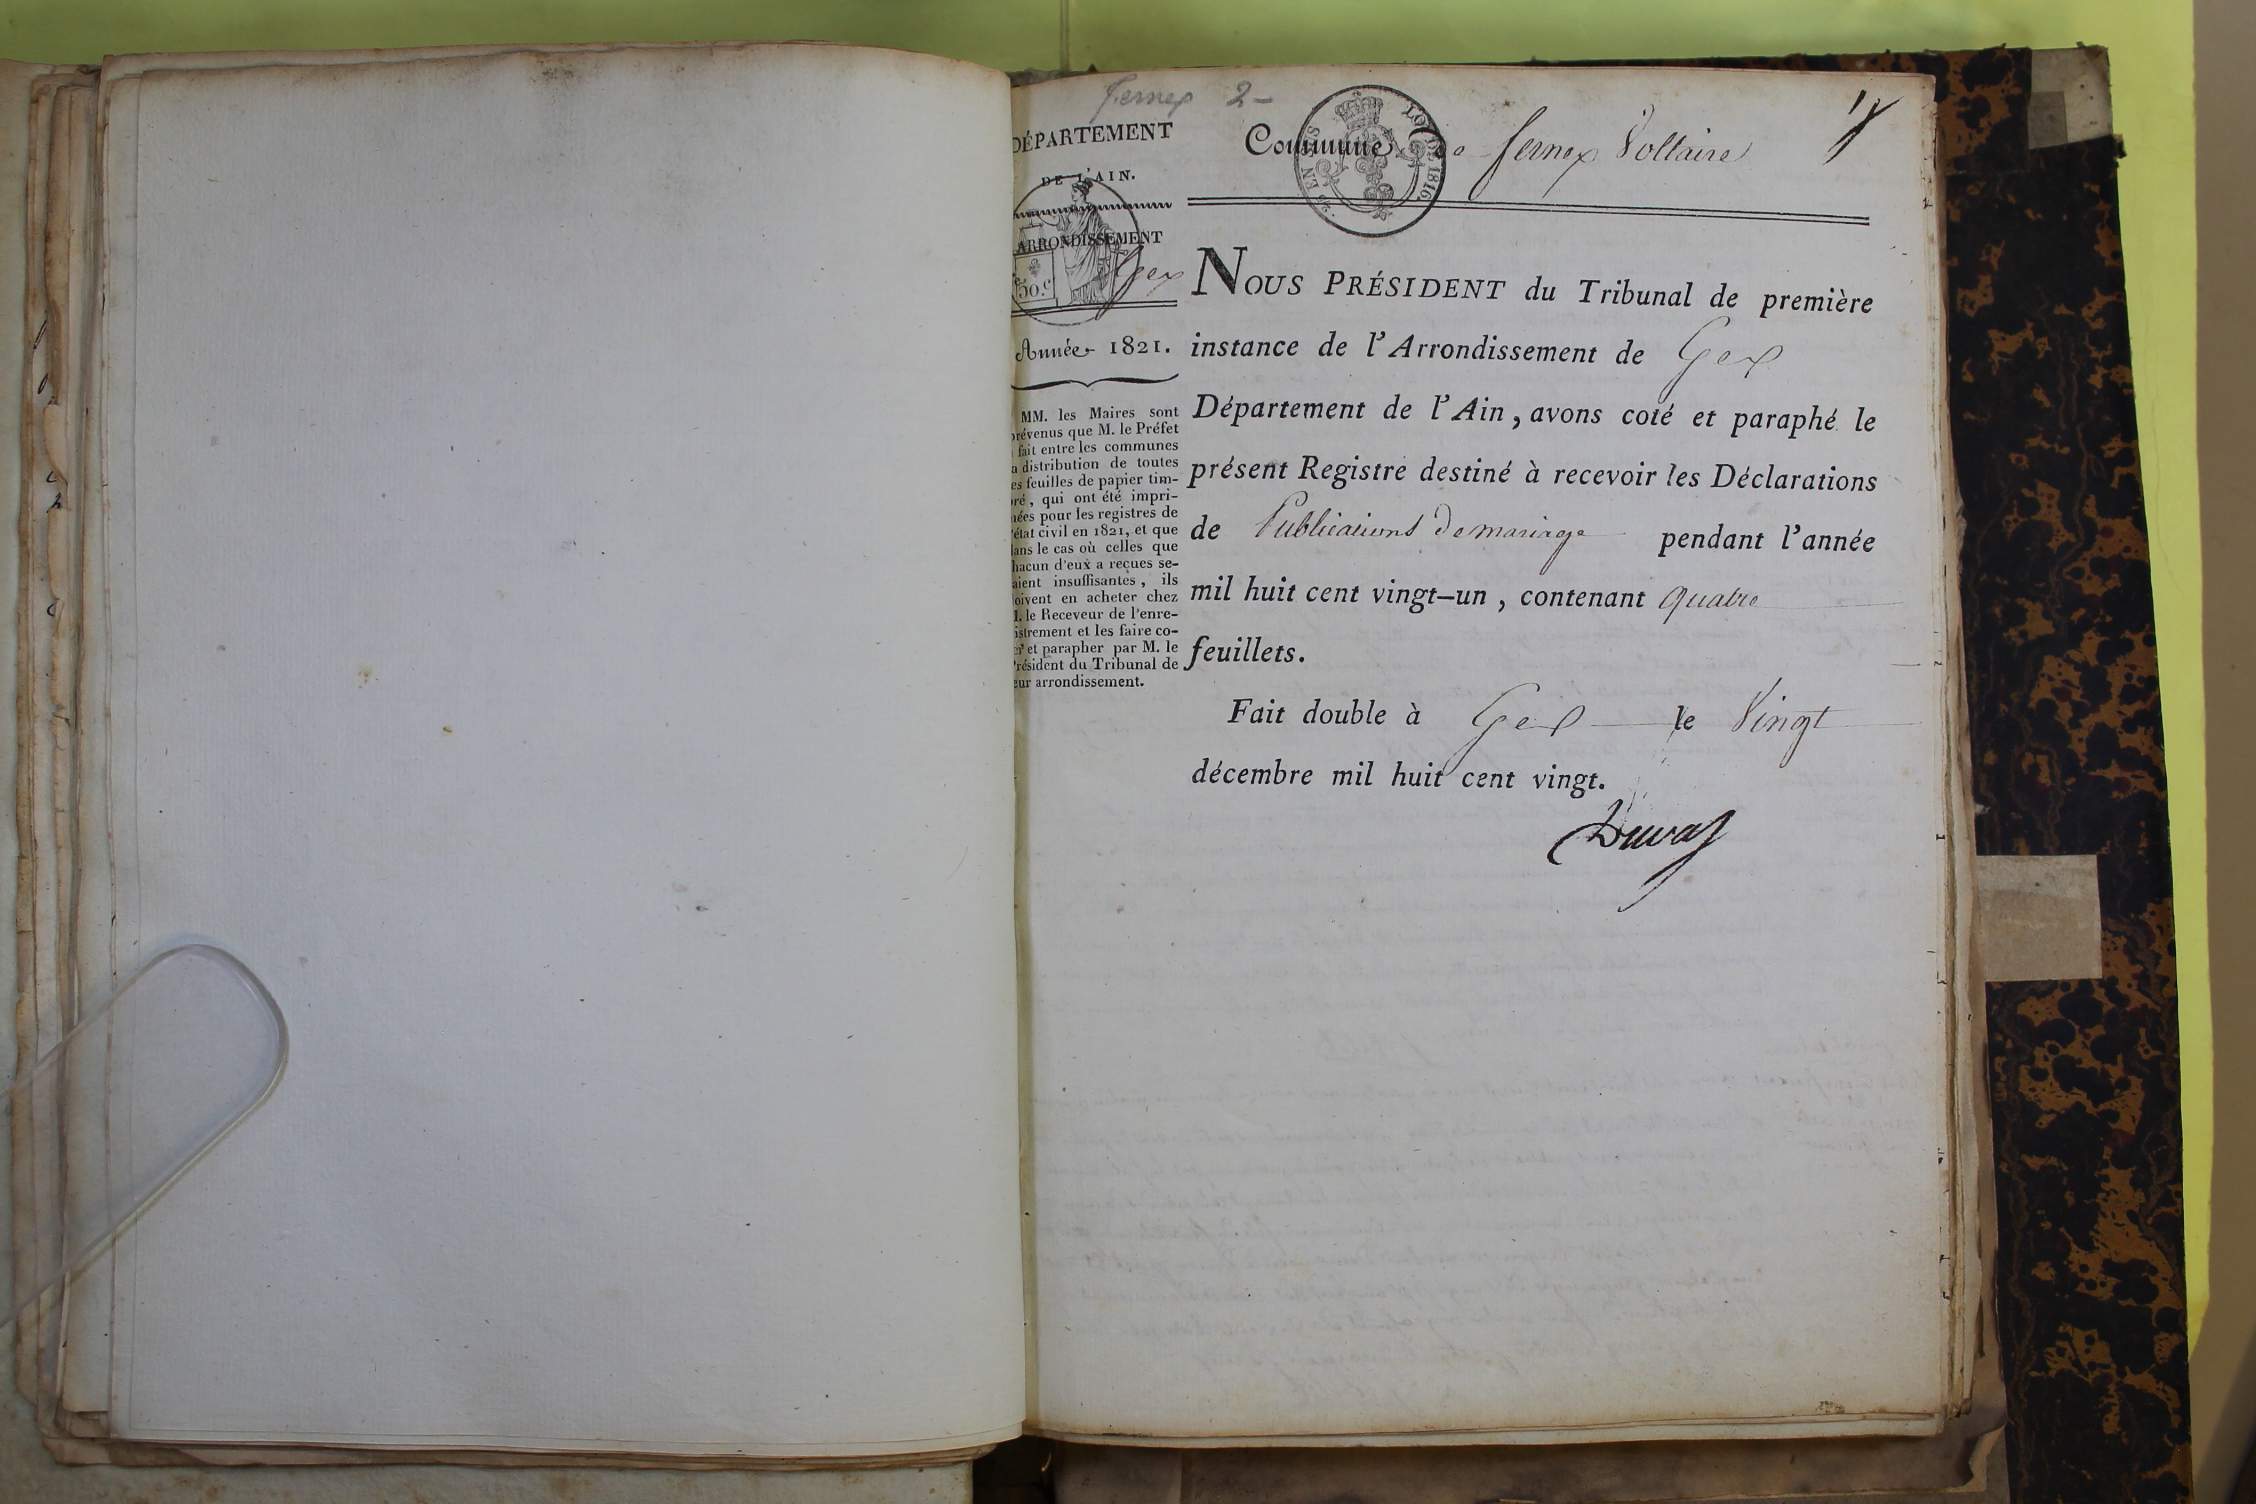 fernex 2-
DÉPARTEMENT
DE L'AIN.
ARRONDISSEMENT
Gex
50.c
Année 1821.
MM. les Maires sont
prévenus que M. le Préfet
fait entre les communes
la distribution de toutes
les feuilles de papier tim-
bré, qui ont été impri-
mées pour les registres de
l'état civil en 1821, et que
dans le cas où celles que
chacun d'eux a reçues se-
raient insuffisantes, ils
doivent en acheter chez
M. le Receveur de l'enre-
gistrement et les faire co-
ter et parapher par M. le
Président du Tribunal de
leur arrondissement.
Commune de fernex Voltaire
EN SUS
LOI DE 1816.
NOUS PRÉSIDENT du Tribunal de première
instance de l'Arrondissement de Gex
Département de l'Ain, avons coté et paraphé le
présent Registre destiné à recevoir les Déclarations
de Publications de mariage pendant l'année
mil huit cent vingt-un, contenant quatre
feuillets.
Fait double à Gex le Vingt
décembre mil huit cent vingt.